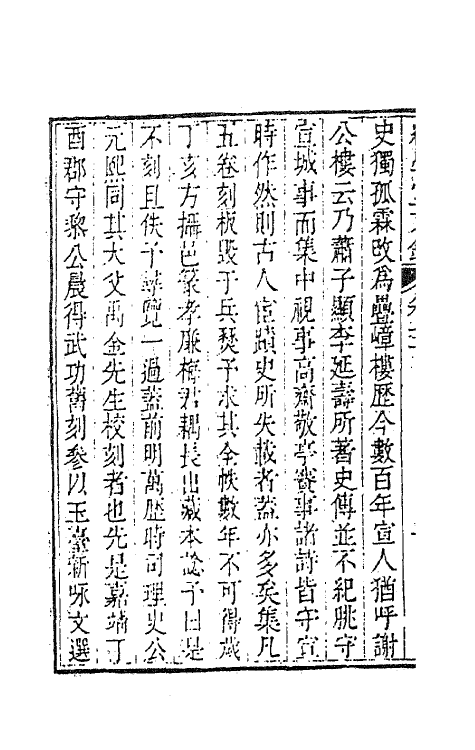 史獨孤霖改為疊嶂樓歷今數百年宣人猶呼謝
公樓云乃蕭子顯李延壽所著史傳並不紀朓守
宣城事而集中視事高齋敬亭賽事諸詩皆守宣
時作然則古人宦蹟史所失載者蓋亦多矣集凡
五卷刻板毀于兵燹予求其全帙數年不可得歲
丁亥方攝邑篆孝廉梅君耦長出藏本諗予曰是
不刻且佚予受覽一過蓋前明萬歷時司理史公
元熙同其大父禹金先生校刻者也先是嘉靖丁
酉郡守黎公晨得武功舊刻參以玉臺新咏文選